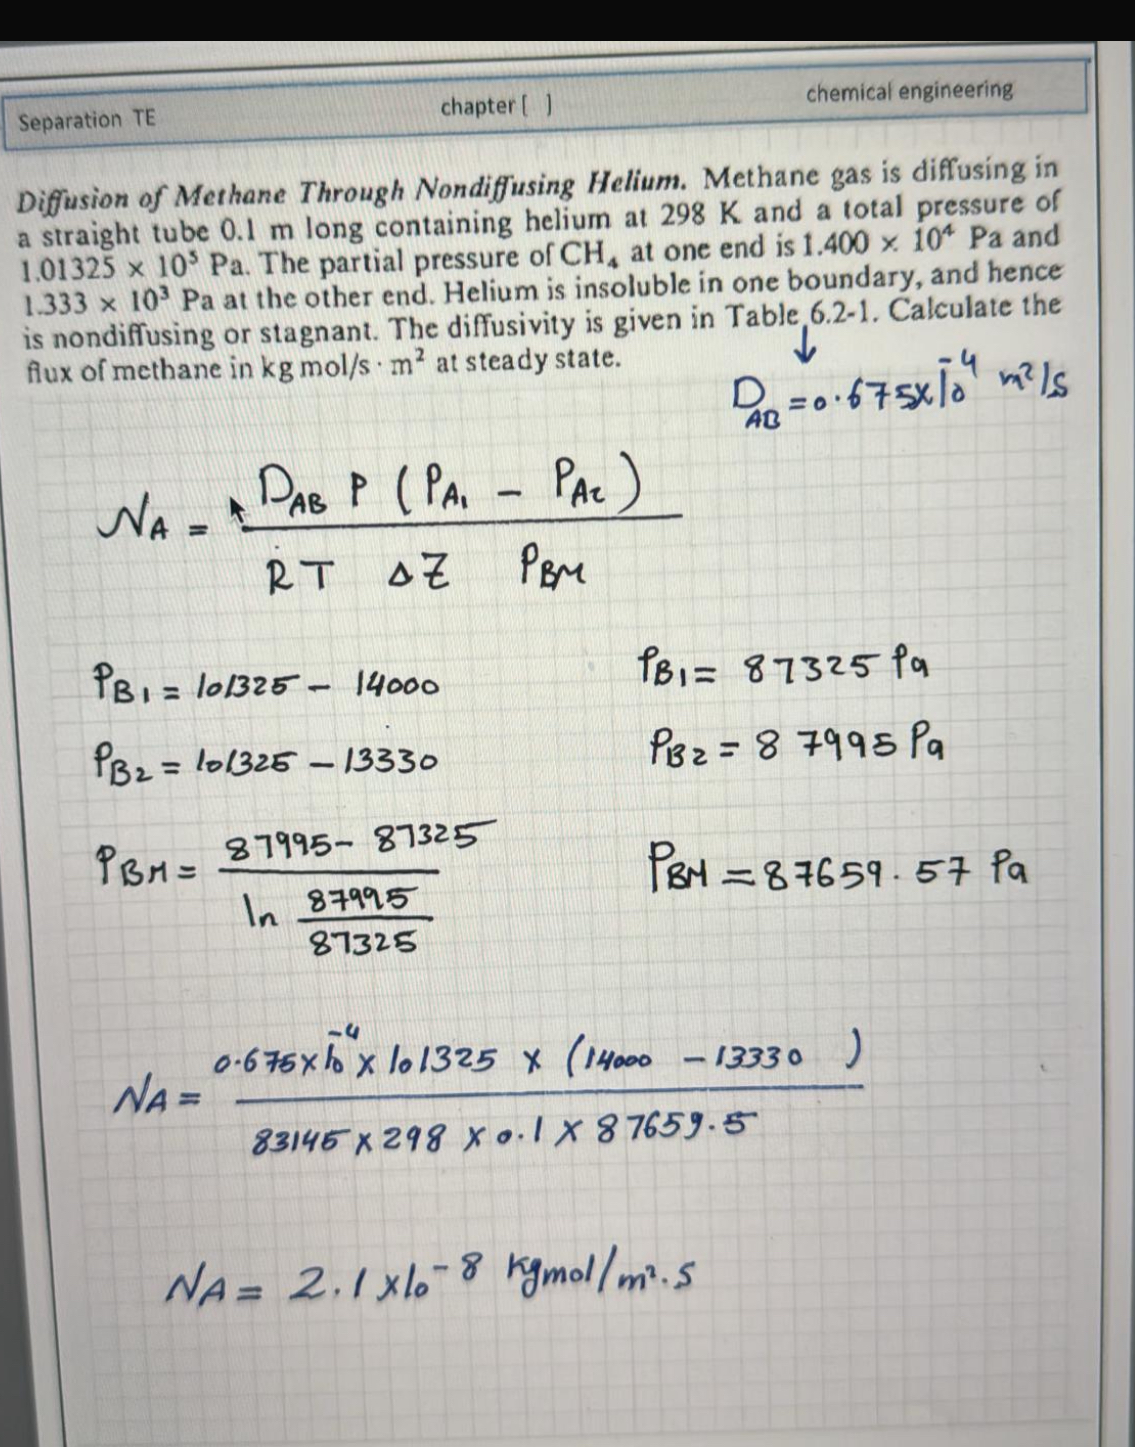 Separation TE chapter [ ] chemical engineering
Diffusion of Methane Through Nondiffusing Helium. Methane gas is diffusing in
a straight tube 0.1 m long containing helium at 298 K and a total pressure of
1.01325 × 10⁵ Pa. The partial pressure of CH₄ at one end is 1.400 × 10⁴ Pa and
1.333 × 10³ Pa at the other end. Helium is insoluble in one boundary, and hence
is nondiffusing or stagnant. The diffusivity is given in Table 6.2-1. Calculate the
flux of methane in kg mol/s · m² at steady state.
↓
D_AB = 0.675x10⁻⁴ m²/s
N_A = D_AB P (P_A1 - P_A2)
RT ΔZ P_BM
P_B1 = 101325 - 14000 P_B1 = 87325 Pa
P_B2 = 101325 - 13330 P_B2 = 87995 Pa
P_BM = 87995 - 87325 P_BM = 87659.57 Pa
ln 87995
87325
N_A = 0.675x10⁻⁴ x 101325 x (14000 - 13330 )
83145 x 298 x 0.1 x 87659.5
N_A = 2.1 x10⁻⁸ kgmol/m².s